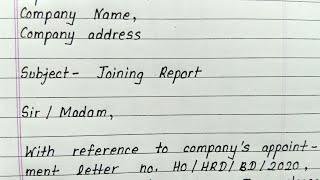 Company Name,
Company address
Subject - Joining Report
Sir / Madam,
With reference to company's appoint-
ment letter no. HO/HRD/BD/2020,